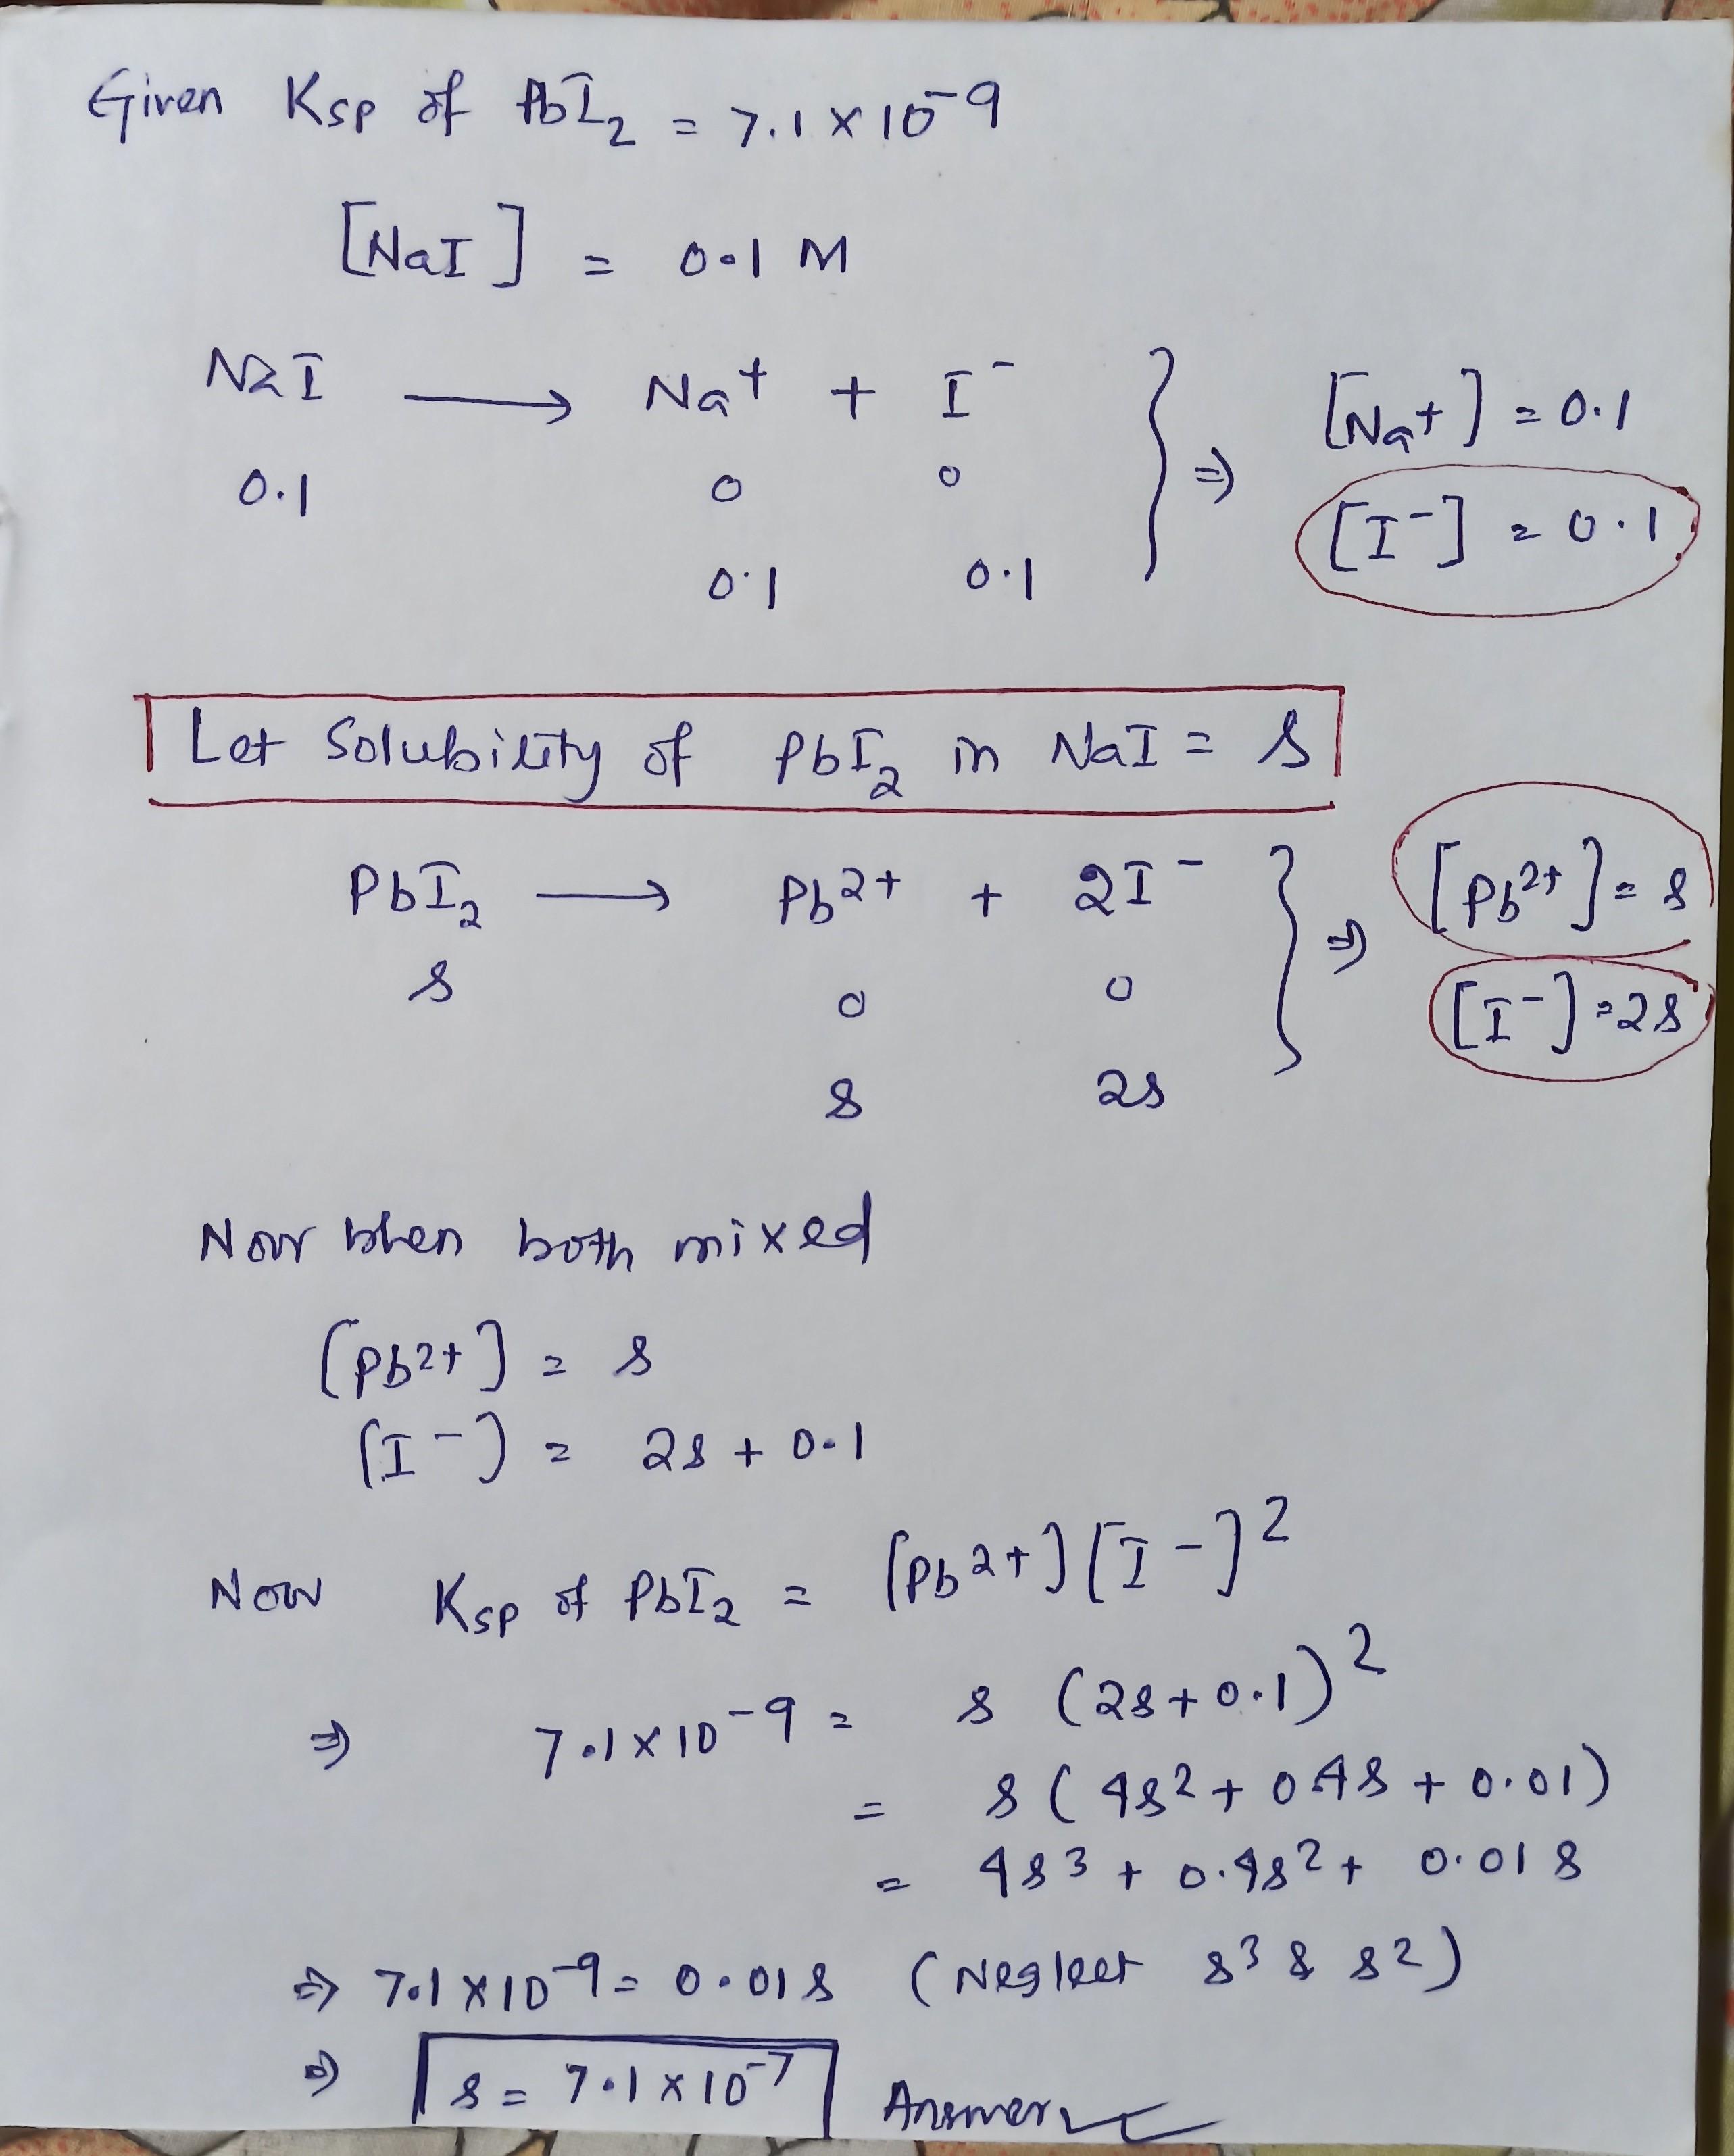 Given Ksp of PbI₂ = 7.1 × 10⁻⁹
[NaI] = 0.1 M
NaI ⟶ Na⁺ + I⁻ } ⇒ [Na⁺] = 0.1
0.1 0 0 [I⁻] = 0.1
0.1 0.1
Let Solubility of PbI₂ in NaI = s
PbI₂ ⟶ Pb²⁺ + 2I⁻ } ⇒ [Pb²⁺] = s
s 0 0 [I⁻] = 2s
s 2s
Now when both mixed
[Pb²⁺] = s
[I⁻] = 2s + 0.1
Now Ksp of PbI₂ = [Pb²⁺] [I⁻]²
⇒ 7.1 × 10⁻⁹ = s (2s + 0.1)²
= s (4s² + 0.4s + 0.01)
= 4s³ + 0.4s² + 0.01 s
⇒ 7.1 × 10⁻⁹ = 0.01 s (Neglect s³ & s²)
⇒ s = 7.1 × 10⁻⁷ Answer